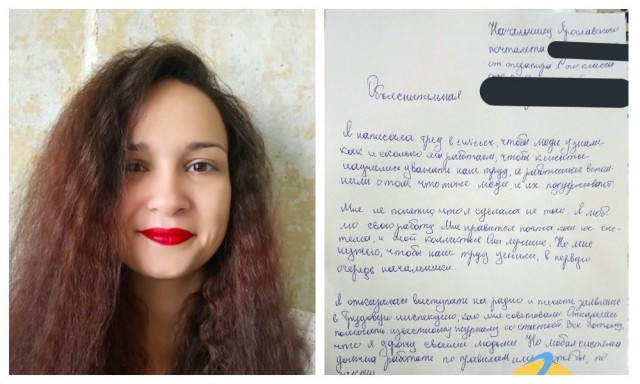 Начальнику Ярославского
почтамта
от оператора 1-ого класса
Объяснительная
Я написала тред в twitter, чтобы люди узнали
как и сколько мы работаем, чтобы клиенты
научились уважать наш труд, а работники вспом-
нили о том, что тоже люди и их поддерживают
Мне не понятно что я сделала не так. Я люб-
лю свою работу. Мне нравится почта как сис-
тема, и мой коллектив лучшие. Но мне
нужно, чтобы наш труд ценили, в первую
очередь начальники
Я отказалась выступать на радио и писать заявление
в Трудовую инспекцию, как мне советовали. Отказалась
помогать известному журналу со статьей. Все потому,
что я дорожу своими людьми. Но любая система
должна работать по правилам по